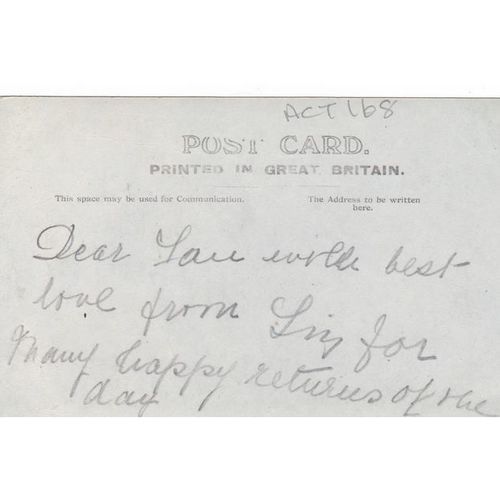 ACT 168
POST CARD.
PRINTED IN GREAT BRITAIN.
This space may be used for Communication.
The Address to be written
here.
Dear best
love from for
Many happy returns of the
day